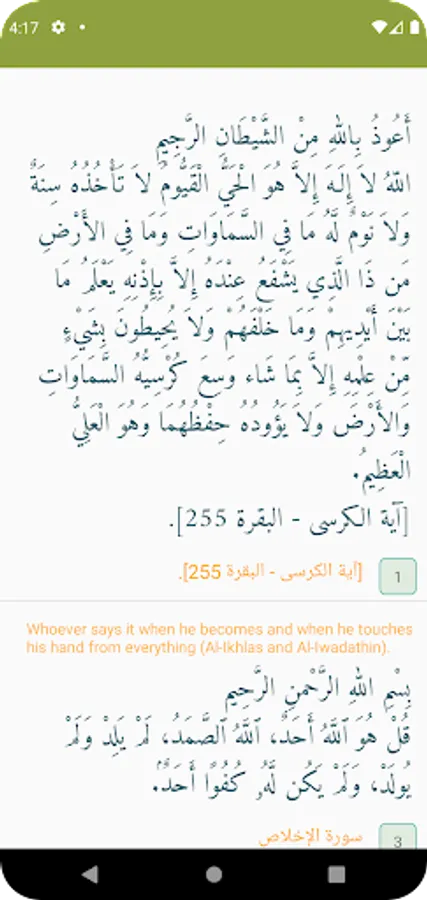 4:17
أَعُوذُ بِاللهِ مِنْ الشَّيْطَانِ الرَّجِيمِ
اللّهُ لاَ إِلَـهَ إِلاَّ هُوَ الْحَيُّ الْقَيُّومُ لاَ تَأْخُذُهُ سِنَةٌ
وَلاَ نَوْمٌ لَّهُ مَا فِي السَّمَاوَاتِ وَمَا فِي الأَرْضِ
مَن ذَا الَّذِي يَشْفَعُ عِنْدَهُ إِلاَّ بِإِذْنِهِ يَعْلَمُ مَا
بَيْنَ أَيْدِيهِمْ وَمَا خَلْفَهُمْ وَلاَ يُحِيطُونَ بِشَيْءٍ
مِّنْ عِلْمِهِ إِلاَّ بِمَا شَاء وَسِعَ كُرْسِيُّهُ السَّمَاوَاتِ
وَالأَرْضَ وَلاَ يَؤُودُهُ حِفْظُهُمَا وَهُوَ الْعَلِيُّ
الْعَظِيمُ.
[آية الكرسى - البقرة 255].
[آية الكرسى - البقرة 255].
1
Whoever says it when he becomes and when he touches
his hand from everything (Al-Ikhlas and Al-Iwadathin).
بِسْمِ اللهِ الرَّحْمنِ الرَّحِيم
قُلْ هُوَ ٱللَّهُ أَحَدٌ، ٱللَّهُ ٱلصَّمَدُ، لَمْ يَلِدْ وَلَمْ
يُولَدْ، وَلَمْ يَكُن لَّهُۥ كُفُوًا أَحَدٌۢ.
سورة الإخلاص
3